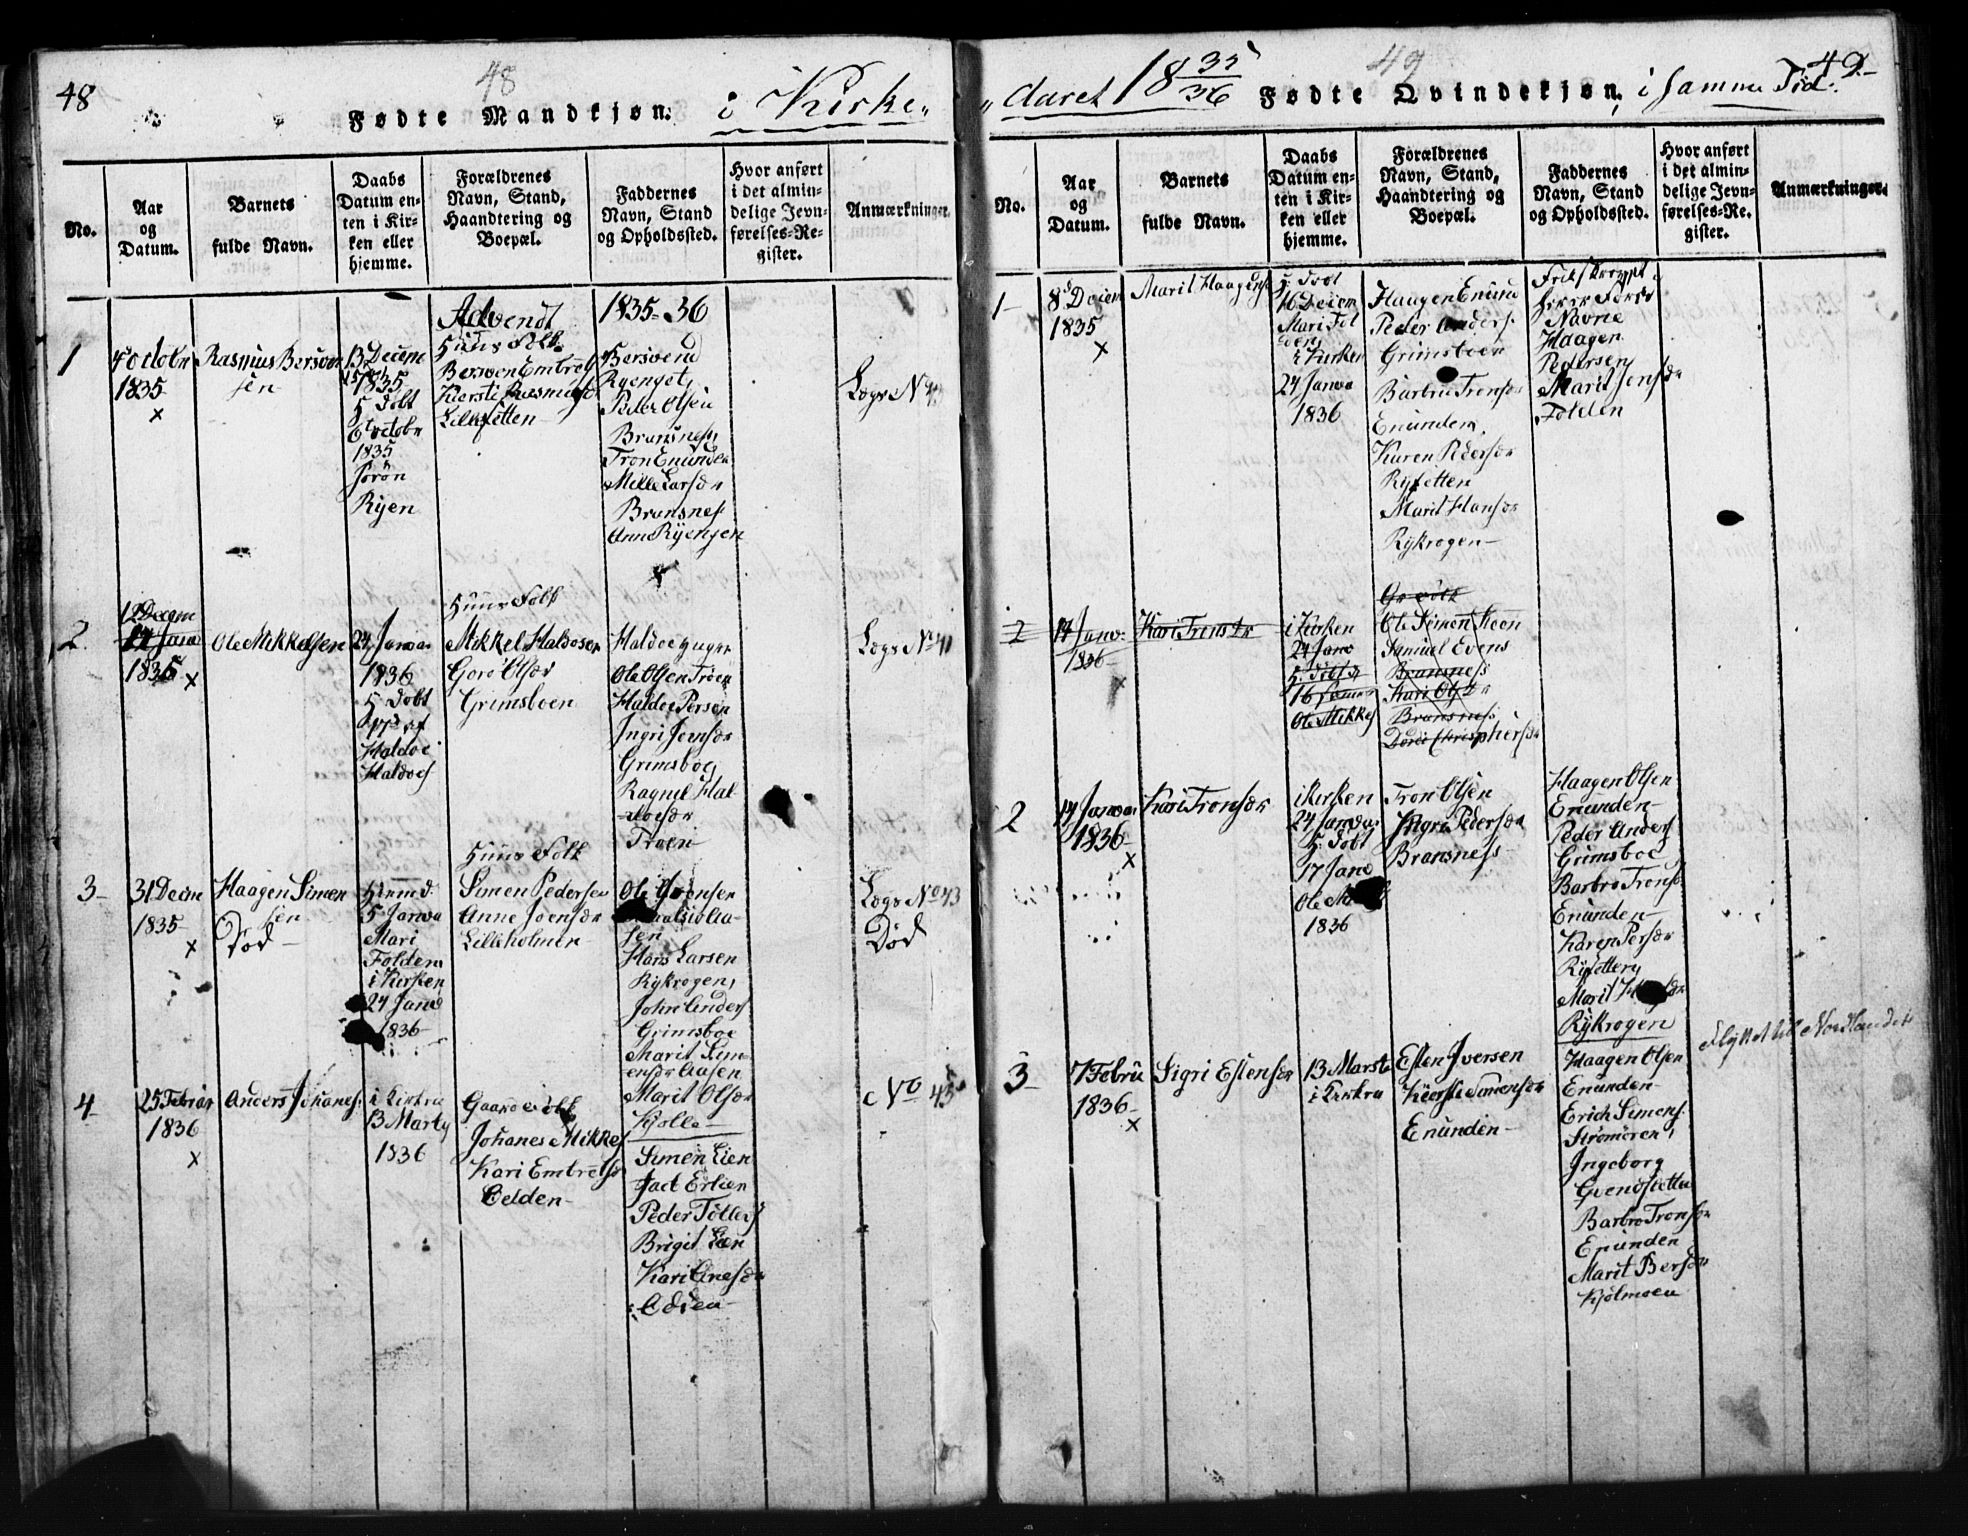 48
48
Fødte Mandkjøn. i Kirke„
No.
Aar
og
Datum.
Barnets
fulde Navn.
Daabs
Datum en-
ten i Kir-
ken eller
hjemme.
Forældrenes
Navn, Stand,
Haandtering og
Boepæl.
Faddernes
Navn, Stand
og Opholdssted.
Hvor anført
i det almin-
delige Jevn-
førelses-Re-
gister.
Anmærkninger.
Advendt
1835-36
1
4 octobr
1835
x
Rasmus Bersven
sen
13 Decem
1835
H Døbt
6 octobr
1835
Jørøn
Ryen
Huus Folk
Bersven Embretsen
Kiersti Rasmusdr
Lillesetten
Bersvend
Ryenget,
Peder Olsen
Bransnes,
Tron Enunden
Mille Larsdr
Bransnes
Anne Ryengen
Logs No
2
Decem
1835
x
Ole Mikkelsen
24 Janva
1836
H Døbt
af
Haldoe
Haldoes
Huus Folk
Mikkel Haldosen
Goro Olsdr
Grimsboen
Ole Olsen Trøen
Haldoe Persen
Ingri Jonsdr
Grimsboe,
Ragnil Hal
doesdr
Trøen
Logs No 41
3
31 Decem
1835
x
Haagen Simen
sen
Død
Hiem d.
5 Janva
Mari
Folden
i Kirken
24 Janv
1836
Huus Folk
Simen Pedersen
Anne Joensdr
Lilleholmen
Ole
Aa-
sen
Hans Larsen
Rykrogen,
John Anders
Grimsboe
Marit Sim-
ensdr Aasen
Marit Olsdr
Kjolle
Logs No 43
Død
4
25 Februar
1836
x
Anders Johanes
i Kirken
13 Marty
1836
Gaard Folk
Johanes Mikkels
Kari Embretsdr
Eelden
Simen Lien
Jact Erlien
Peder Tollefs
Brigit Lien
Kari
No 45
„Aaret 18 35/36 Fødte Qvindekjøn, i samme Tid.
49
49
No.
Aar
og
Datum.
Barnets
fulde Navn.
Daabs
Datum en-
ten i Kir-
ken eller
hjemme.
Forældrenes
Navn, Stand,
Haandtering og
Boepæl.
Faddernes
Navn, Stand
og Opholdssted.
Hvor anført
i det almin-
delige Jevn-
førelses-Re-
gister.
Anmærkninger.
1
8 Decem
1835
x
Marit Haagens
H Døbt
16 Decem
Mari Fol
den
i Kirken
24 Janva
1836
Haagen Enund
Peder Anders
Grimsboen
Barbru Tronsdr
Enunden,
Karen Pedersdr
Rysetten
Marit Hansdr
Rykrogen
Navne
Haagen
Pedersen
Marit Jensdr
Folden
2
14 Janv
1836
x
Kari Tronsdr
i Kirken
24 Janv
H. Døbt
16 Janv
Ole Mikkels
Ole Simen Moen
Samuel Evens
Bransness
Kari Olsdr
Bransness
2
14 Janva
1836
x
Kari Tronsdr
i Kirken
24 Janva
H. Døbt
17 Janv
Ole
1836
Tron Olsen
Ingri Pedersdr
Bransness
Haagen Olsen
Enunden
Peder Anders
Grimsboe
Barbro Tronsd
Enunden
Karen Persdr
Rysetten,
Marit
Rykrogen
3
7 Febru
1836
x
Sigri Estensdr
13 Marst
i Kirken
Esten Iversen
Kiersti Simensdr
Enunden
Haagen Olsen
Enunden
Erich Simens
Strømøren,
Ingeborg
Barbro Tronsdr
Enunden
Marit Bersdr
Kjølmoen
Flyttet til Nordlandet